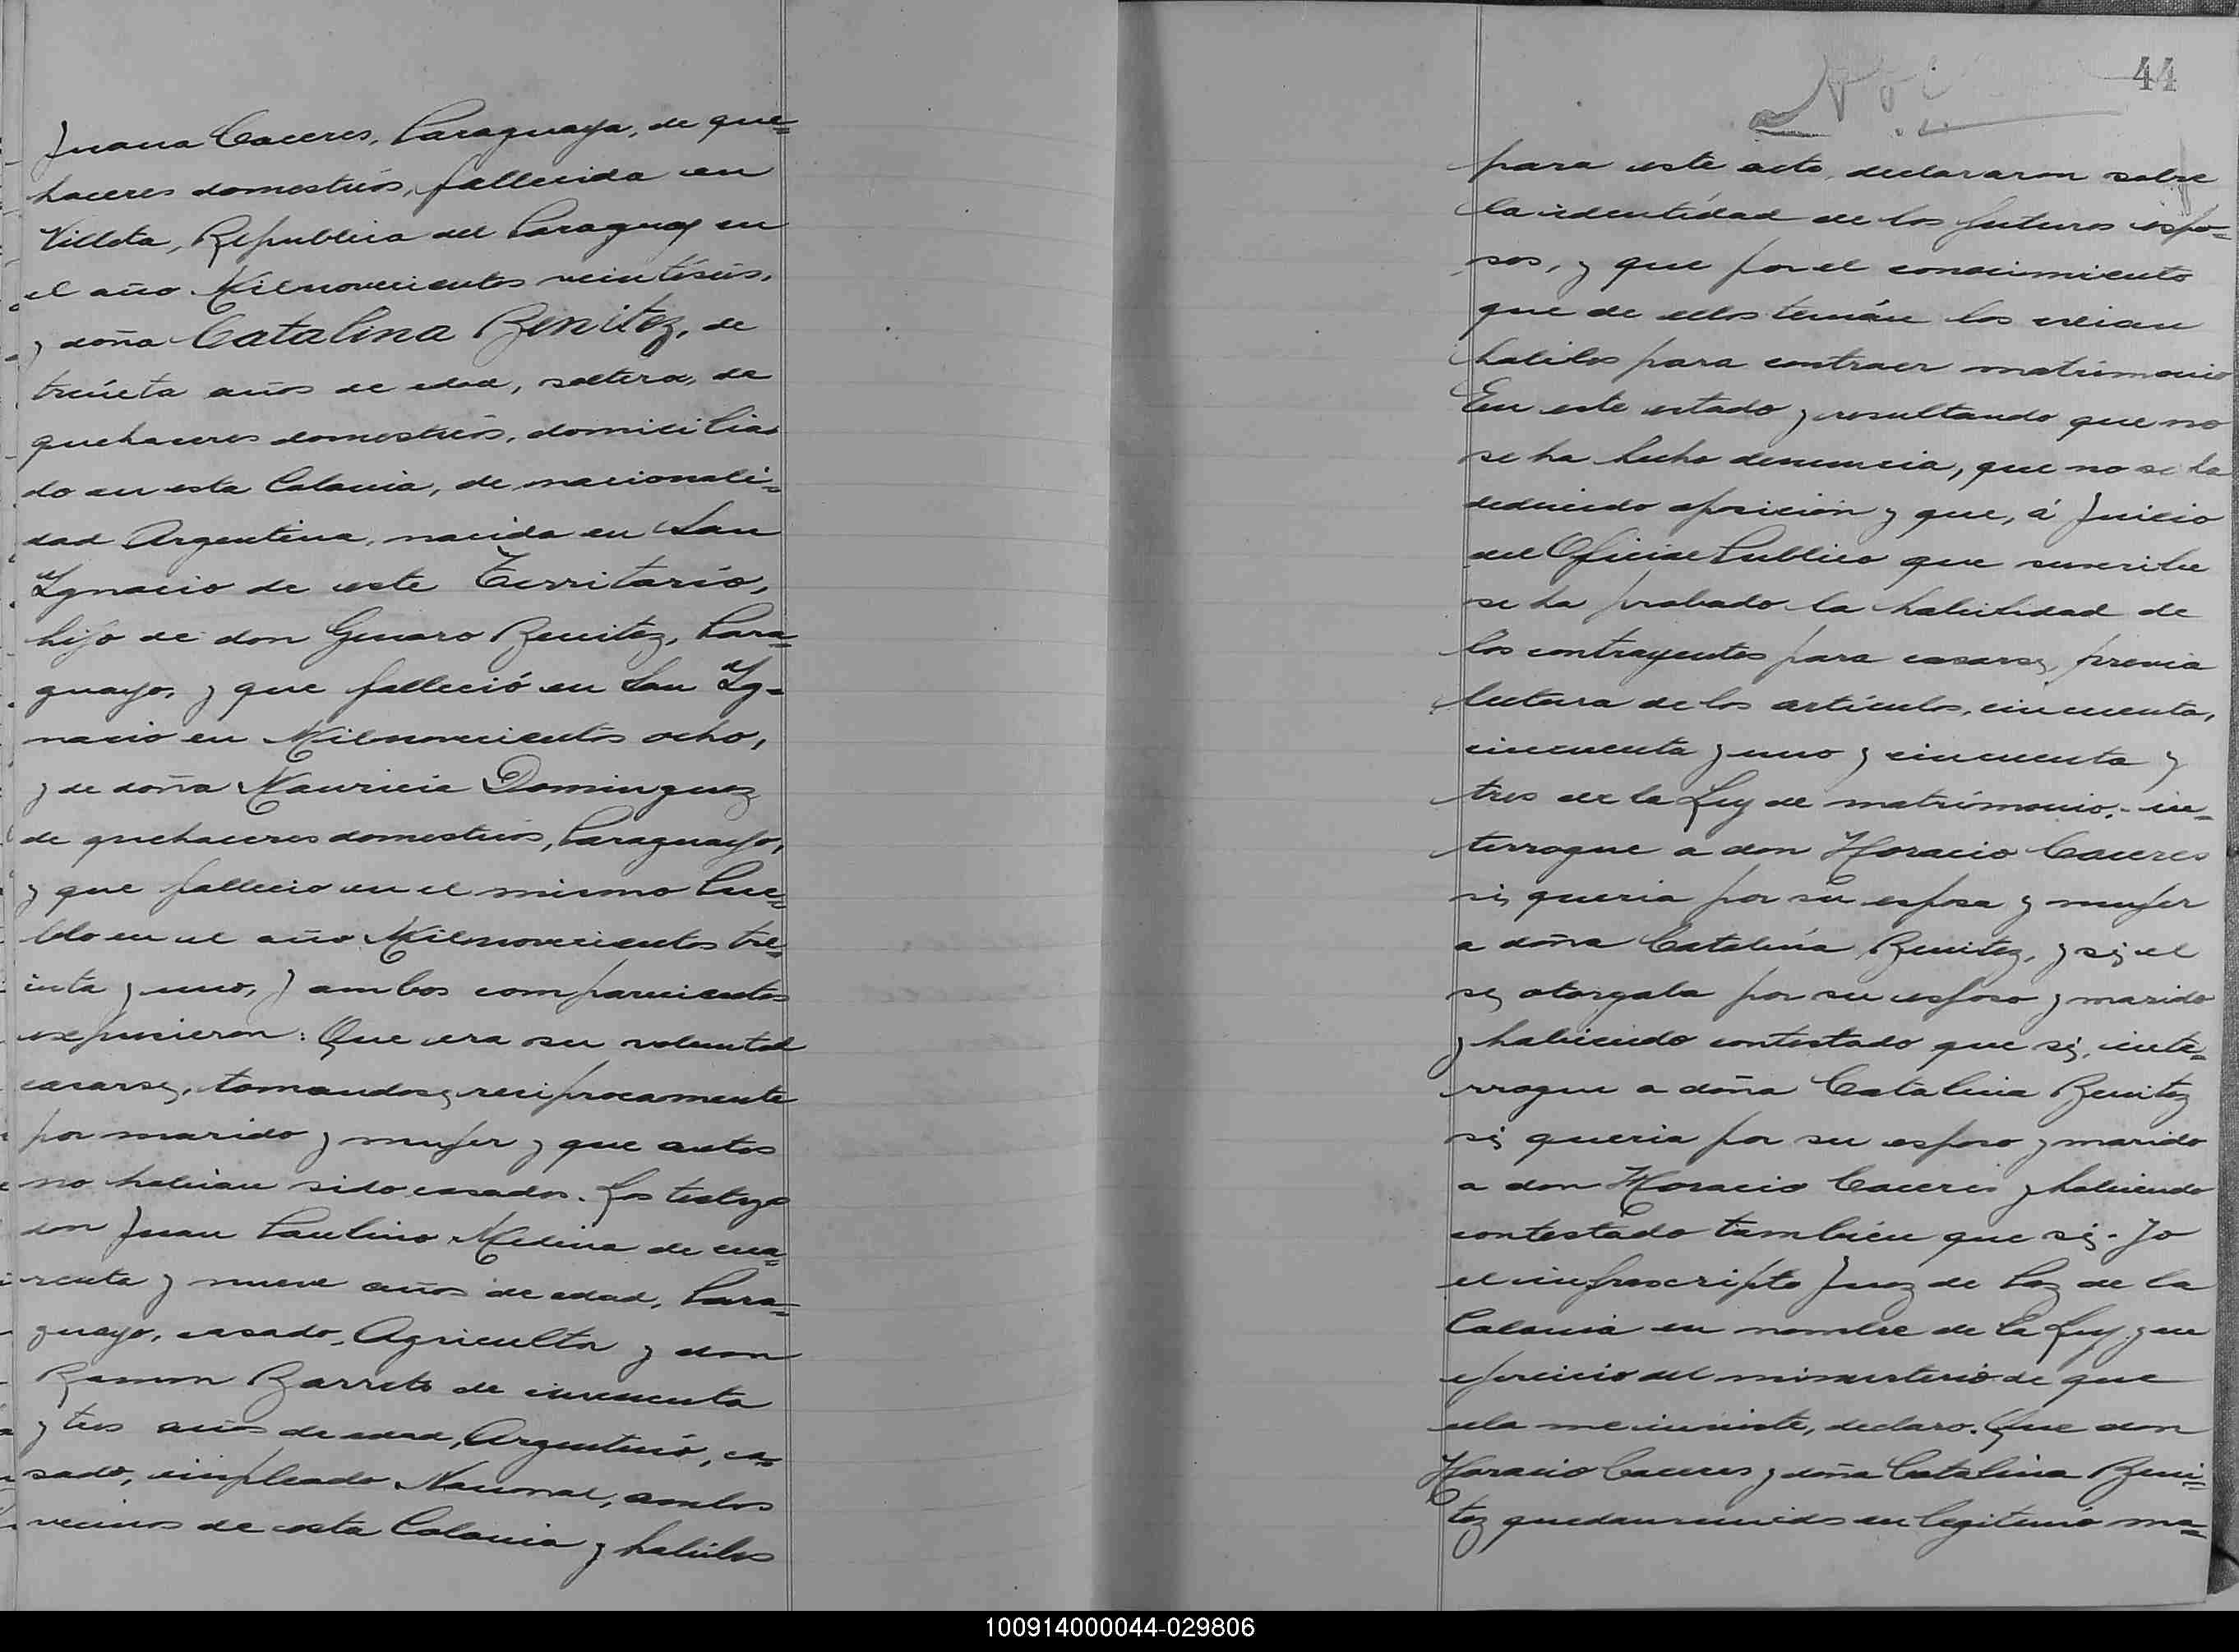 Juana Caceres, Paraguaya, de que=
haceres domesticos, fallecida en
Villeta, Republica del Paraguay en
el año Milnovecientos veintiséis,
y doña Catalina Benitez, de
treinta años de edad, soltera, de
quehaceres domesticos, domicilia
do en esta Colonia, de nacionali=
dad Argentina, nacida en San
Ignacio de este Territorio,
hijo de don Genaro Benitez, Para=
guayo, y que falleció en San Ig=
nacio en Milnovecientos ocho,
y de doña Mauricia Dominguez
de quehaceres domesticos, Paraguayo,
y que fallecio en el mismo Pue=
blo en el año Milnovecientos tre=
inta y uno, y ambos comparecientes
expusieron: Que era su voluntad
casarse, tomandose reciprocamente
por marido y mujer y que antes
no habian sido casados. Los testigos
don Juan Paulino Medina de cua=
renta y nueve años de edad, Para=
guayo, casado, Agricultor y don
Ramon Barreto de cincuenta
y tres años de edad, Argentino, ca=
sado, empleado Nacional, ambos
vecinos de esta Colonia y habiles
44
para este acto, declararon sobre
la identidad de los futuros espo=
sos, y que por el conocimiento
que de ellos tenián los creian
habiles para contraer matrimonio
En este estado y resultando que no
se ha hecho denuncia, que no se ha
deducido oposición y que, á juicio
del Oficial Publico que suscribe
se ha probado la habilidad de
los contrayentes para casarse, previa
lectura de los artículos, cincuenta,
cincuenta y uno y cincuenta y
tres de la Ley de matrimonio,- in=
terrogue a don Horacio Caceres
si, queria por su esposa y mujer
a doña Catalina Benitez, y si el
se otorgaba por su esposo y marido
y habiendo contestado que si, inte=
rrogue a doña Catalina Benitez
si queria por su esposo y marido
a don Horacio Caceres y habiendo
contestado también que si.- Yo
el infrascripto Juez de Paz de la
Colonia en nombre de la Ley y en
ejercicio del ministerio de que
ella me inviste, declaro. Que don
Horacio Caceres y doña Catalina Beni=
tez quedan unidos en legitimo ma=
100914000044-029806